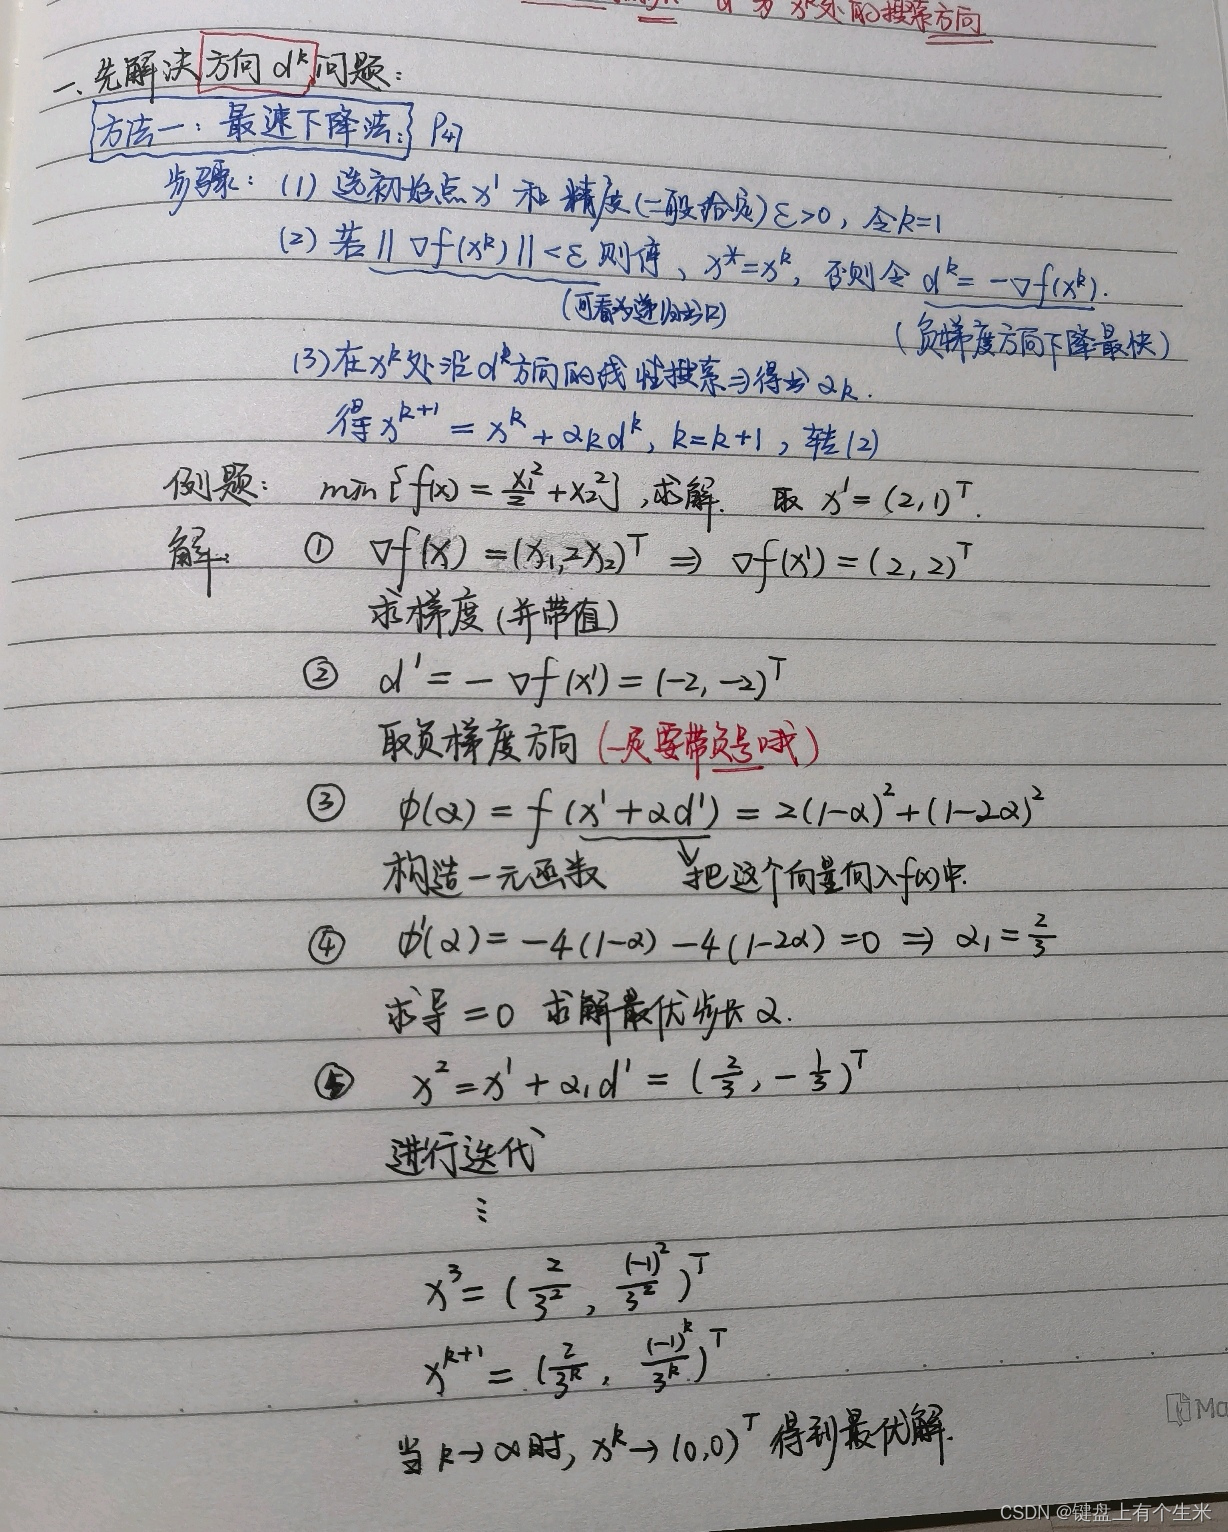 d 为 x^k处的搜索方向
一、先解决方向 d^k 问题：
方法一：最速下降法： P47
步骤：(1) 选初始点 x¹ 和 精度(一般给定) ε>0，令 k=1
(2) 若 ‖∇f(x^k)‖<ε 则停、x*=x^k，否则令 d^k = -∇f(x^k).
(可看为递归出口)
(负梯度方向下降最快)
(3) 在 x^k 处沿 d^k 方向的线性搜索⇒得出 α_k.
得 x^{k+1} = x^k + α_k d^k, k=k+1，转(2)
例题： min{f(x) = x₁²/2 + x₂²}，求解. 取 x¹ = (2,1)^T.
解： ① ∇f(x) = (x₁,2x₂)^T ⇒ ∇f(x¹) = (2,2)^T
求梯度(并带值)
② d¹ = -∇f(x¹) = (-2,-2)^T
取负梯度方向 (一定要带负号哦)
③ φ(α) = f(x¹+αd¹) = 2(1-α)²+(1-2α)²
构造一元函数 把这个向量向入f(x)中.
④ φ'(α) = -4(1-α) -4(1-2α) =0 ⇒ α₁ = 2/3
求导 = 0 求解最优步长 α.
⑤ x² = x¹ + α₁d¹ = (2/3, -1/3)^T
进行迭代
⋮
x³ = (2/3², (-1)²/3²)^T
x^{k+1} = (2/3^k, (-1)^k/3^k)^T
当 k→∞时，x^k → (0,0)^T 得到最优解.
Ma
CSDN @键盘上有个生米